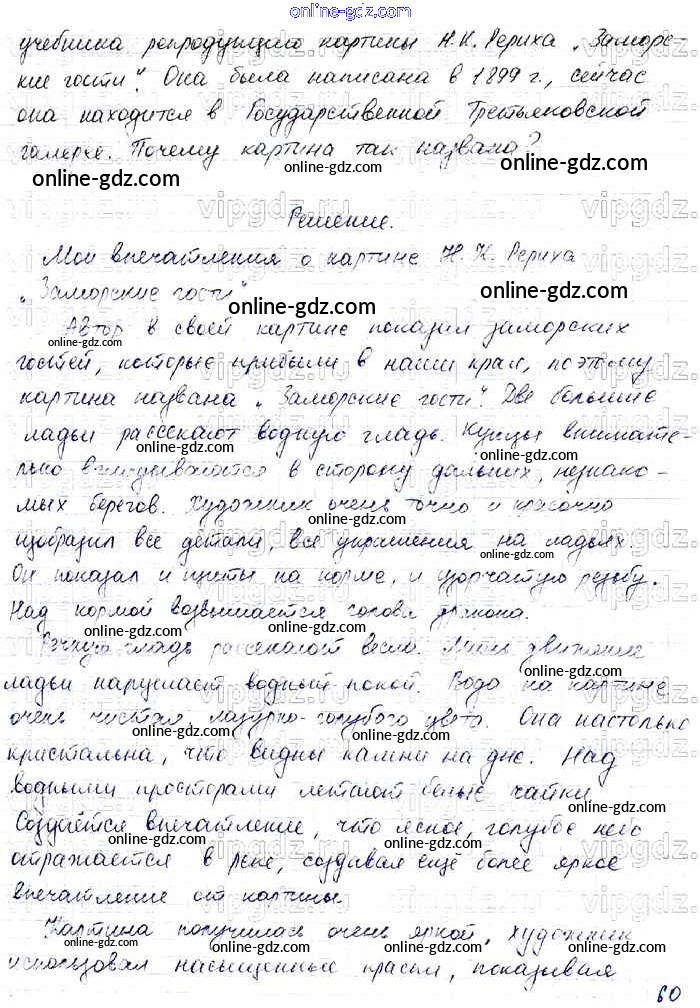 online-gdz.com
учебника репродукцию картины Н.К. Рериха „Заморс-
кие гости". Она была написана в 1899 г., сейчас
она находится в Государственной Третьяковской
галерее. Почему картина так названа?
Решение.
Мои впечатления о картине Н. К. Рериха
„Заморские гости"
Автор в своей картине показал заморских
гостей, которые прибыли в наши края, поэтому
картина названа „Заморские гости". Две большие
ладьи рассекают водную гладь. Купцы внимате-
льно вглядываются в сторону дальних, незнако-
мых берегов. Художник очень точно и красочно
изобразил все детали, все украшения на ладьях.
Он показал и щиты на корме, и узорчатую резьбу.
Над кормой возвышается голова дракона.
Речную гладь рассекают весла. Лишь движение
ладьи нарушает водный покой. Вода на картине
очень чистая, лазурно-голубого цвета. Она настолько
кристальна, что видны камни на дне. Над
водными просторами летают белые чайки
Создаётся впечатление, что ясное, голубое небо
отражается в реке, создавая ещё более яркое
впечатление от картины
Картина получилась очень яркой, художник
использовал насыщенные краски, показывая
60